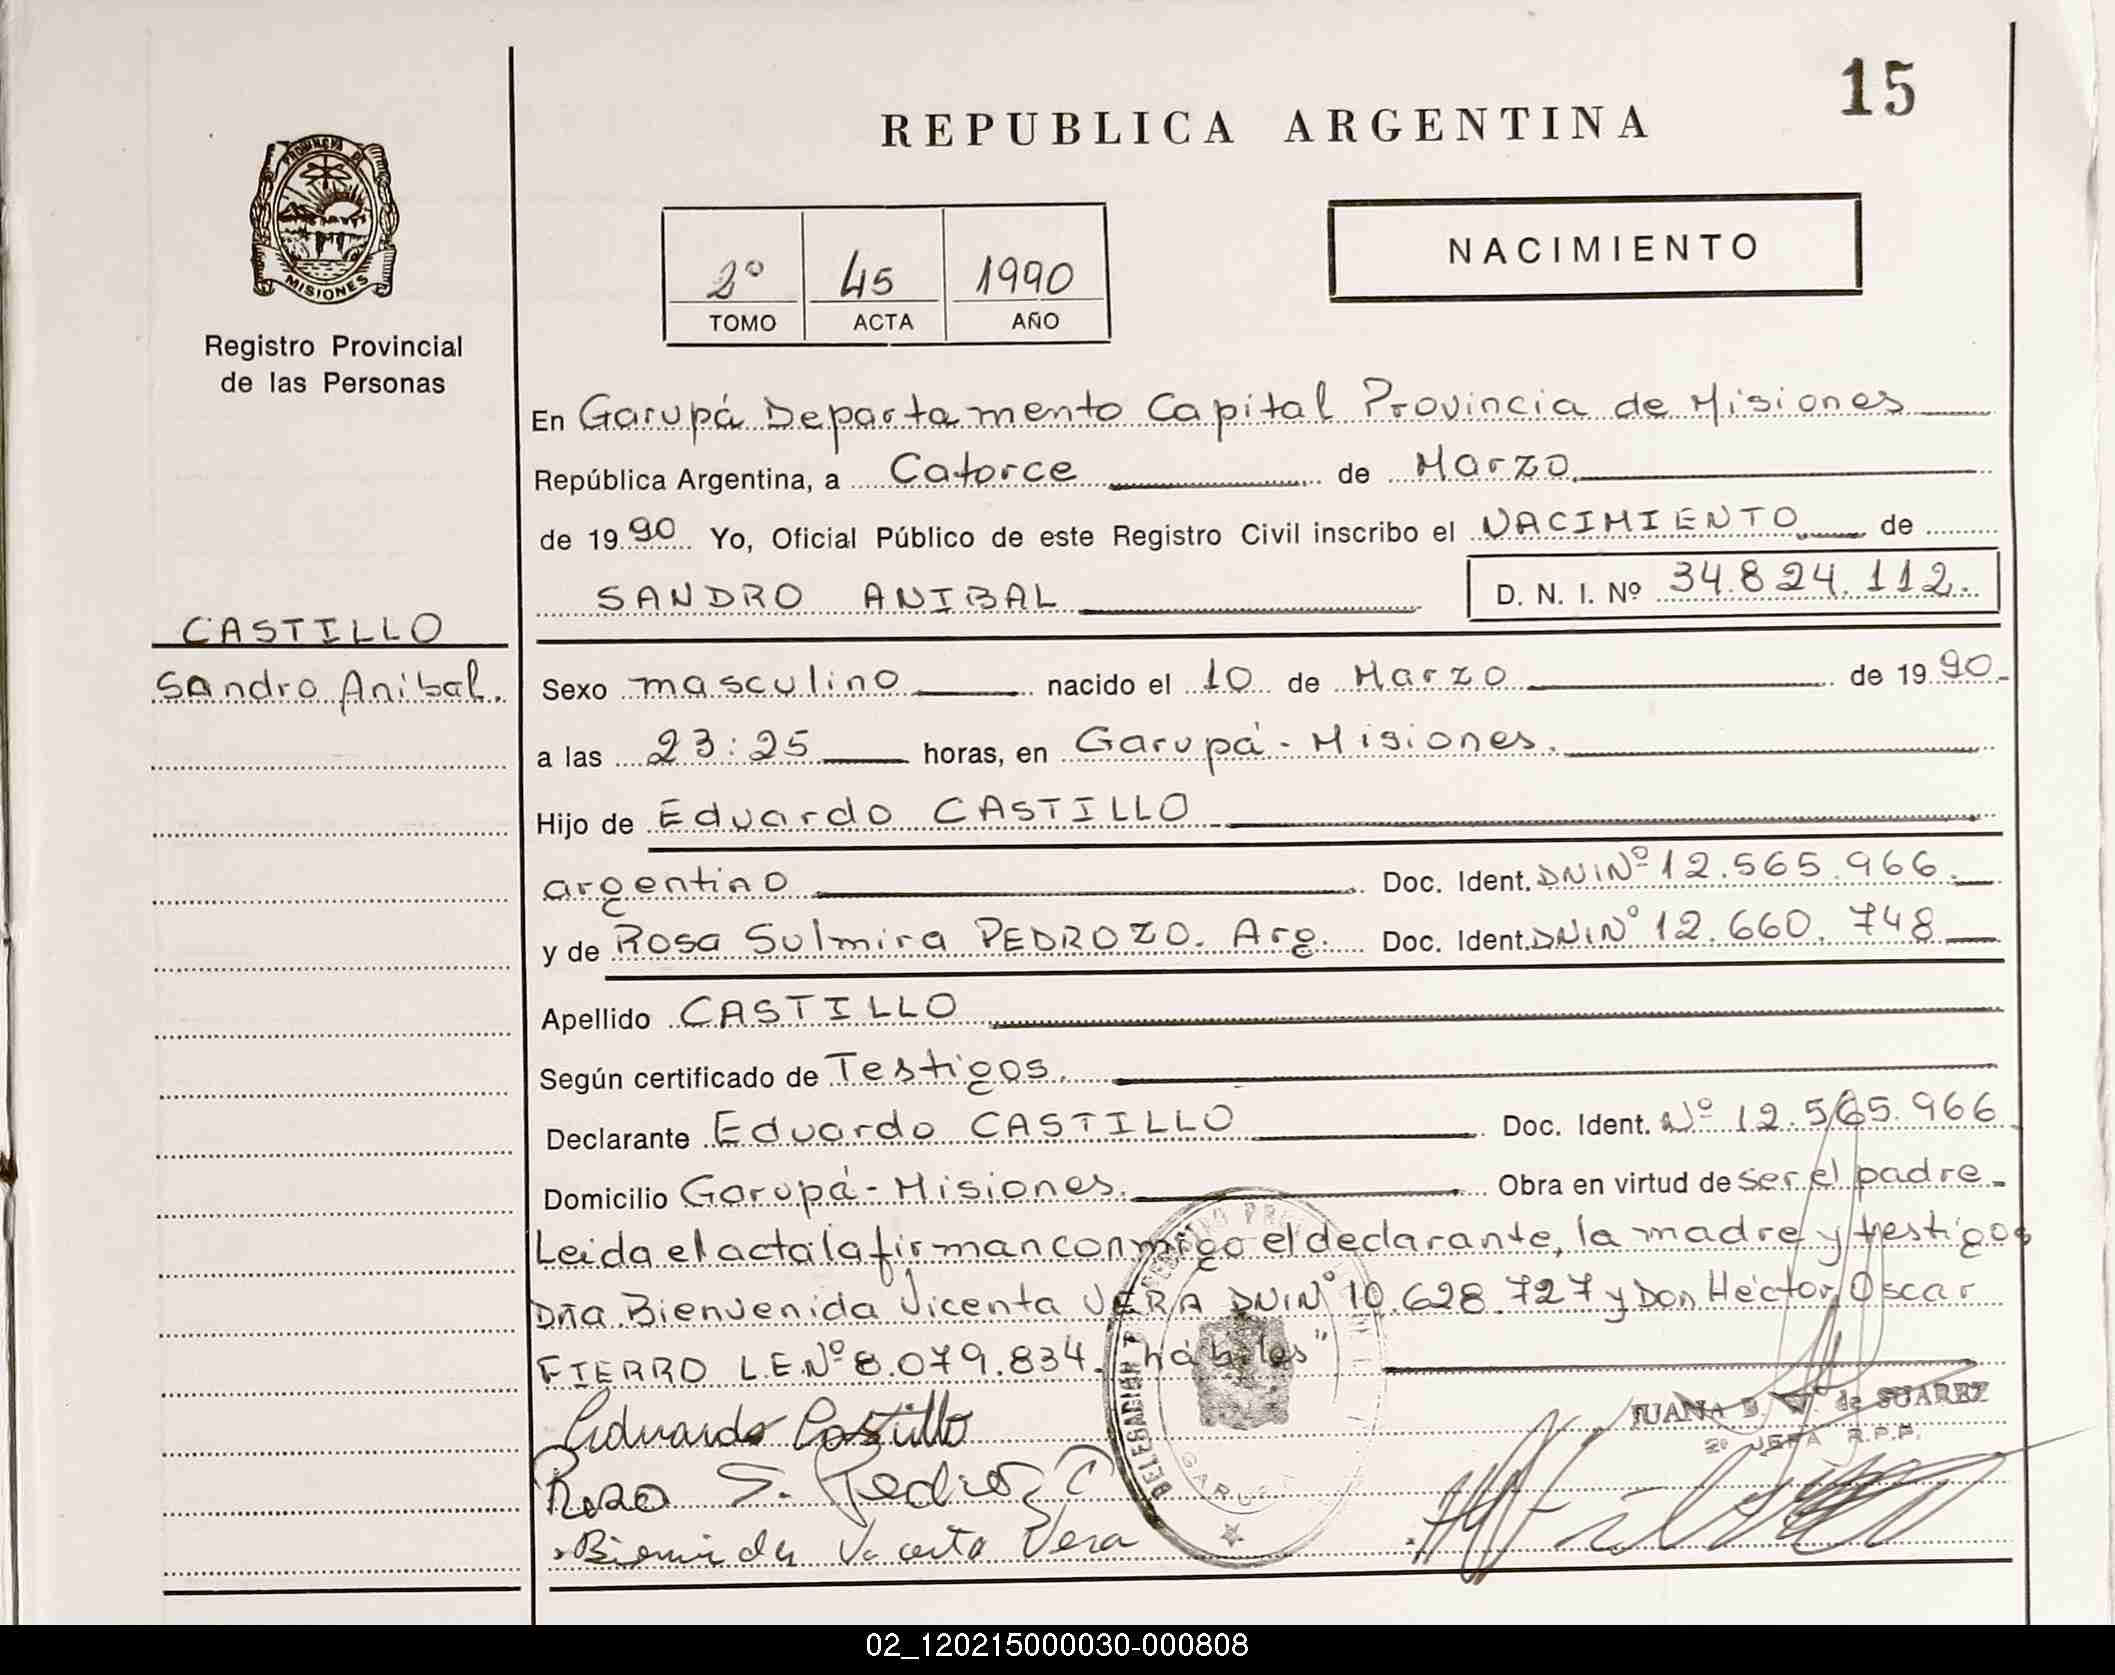 15
REPUBLICA ARGENTINA
PROVINCIA DE
MISIONES
Registro Provincial
de las Personas
2º 45 1990
TOMO ACTA AÑO
NACIMIENTO
En Garupá Departamento Capital Provincia de Misiones
República Argentina, a Catorce de Marzo
de 1990 Yo, Oficial Público de este Registro Civil inscribo el NACIMIENTO de
SANDRO ANIBAL D. N. I. Nº 34.824.112.
CASTILLO
Sandro Anibal.
Sexo masculino nacido el 10 de Marzo de 1990
a las 23:25 horas, en Garupá - Misiones.
Hijo de Eduardo CASTILLO
argentino Doc. Ident. DNINº 12.565.966.
y de Rosa Sulmira PEDROZO. Arg. Doc. Ident. DNINº 12.660.748
Apellido CASTILLO
Según certificado de Testigos.
Declarante Eduardo CASTILLO Doc. Ident. Nº 12.565.966
Domicilio Garupá - Misiones. Obra en virtud de ser el padre
Leida el acta la firman conmigo el declarante, la madre y testigos
Dña Bienvenida Vicenta VERA DNINº 10.628.727 y Don Héctor Oscar
FIERRO L.E.Nº 8.079.834. "hábiles"
Eduardo Castillo
JUANA B. de SUAREZ
2º JEFA R.P.P.
Rosa S. Pedrozo
Bienvenida Vicenta Vera
DELEGACION
GARUPA
02_120215000030-000808